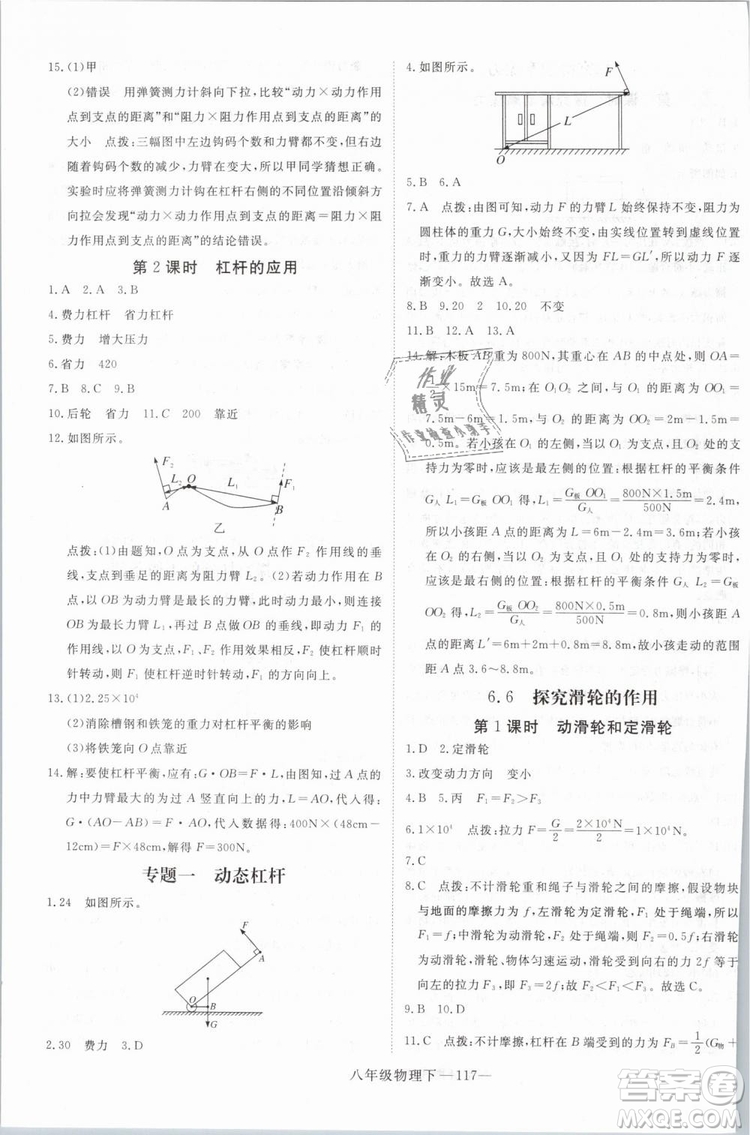 15.(1)甲
(2)错误　用弹簧测力计斜向下拉，比较“动力×动力作用
点到支点的距离”和“阻力×阻力作用点到支点的距离”的
大小　点拨：三幅图中左边钩码个数和力臂不变，右边
随着钩码个数的减少，力臂变大，所以甲同学猜想正确。
实验时应将弹簧测力计钩在杠杆右侧的不同位置沿不同
方向拉会发现“动力×动力作用点到支点的距离=阻力×阻
力作用点到支点的距离”的结论错误。
第2课时　杠杆的应用
1.A　2.A　3.B
4.费力杠杆　省力杠杆
5.费力　增大压力
6.省力　420
7.B　8.C　9.B
10.后轮　省力　11.C　200　靠近
12.如图所示。
F₂　L₂　O　L₁　F₁
A　B
乙
点拨：(1)由题知，O点为支点，从O点作F₂作用线的垂
线，支点到垂足的距离为阻力臂L₂。(2)若动力作用在B
点，以OB为动力臂是最长的力臂，此时最省力，连接
OB，过B点作OB的垂线，即为动力F₁的
作用线，以O为支点，阻力F₂使杠杆顺时
针转动，费力杠杆逆时针转动，F₁的方向向上。
13.(1)2.25×10⁴
(2)消除槽钢和铁笼的重力对杠杆平衡的影响
(3)将铁笼向O点靠近
14.解：要使杠杆平衡，应满足：G·OB=F·L，由图可知，最大
的力中力臂最大为过A竖直向上的力，L=AO，代入上式
得：G·(AO－AB)=F·AO，代入数据得：400N×(48cm－
12cm)=F×48cm，解得F=300N。
专题一　动态杠杆
1.24　如图所示。
F
A
O　B
G
2.30　费力　3.D
4.如图所示。
F
L
O
5.B　6.A
7.A　点拨：由图可知，动力F的力臂L始终保持不变，阻力为
圆柱体的重力G，大小始终不变，由实线转到虚线位置
时，重力的力臂逐渐减小，又因为FL=GL′，所以动力F逐
渐变小。故选A。
8.B　9.20　2　10.20　不变
11.B　12.A　13.A
14.解：木板AB重为800N，其重心在AB的中点处，则OA=
½×15m=7.5m；O在O₁O₂之间，与O₁的距离为OO₁=
7.5m－6m=1.5m，与O₂的距离为OO₂=7m－
6.5m=0.5m。若小孩在O的左侧，当以O₁为支点，O₂的支持力为零
时，应该是最左侧的位置：根据杠杆的平衡条件
G人L₁=G板OO₁，L₁=G板OO₁/G人=800N×1.5m/500N=2.4m，
所以小孩距A点为L=6m－2.4m=3.6m；若小孩
在O的右侧，当以O₂为支点，在O₁处的支持力为零时，
应该是最右侧的位置：根据杠杆的平衡条件G人L₂=
G板OO₂，L₂=G板OO₂/G人=800N×0.5m/500N=0.8m，所以小孩距A点的
距离L′=6m+2m+0.8m=8.8m，故小孩走动的范围为
距A点3.6～8.8m。
6.6　探究滑轮的作用
第1课时　动滑轮和定滑轮
1.D　2.定滑轮
3.改变动力方向　变小
4.B　5.丙　F₁=F₂>F₃
6.1×10⁴　点拨：拉力F=G/2=2×10⁴N/2=1×10⁴N
7.C
8.C　点拨：不计滑轮重和绳子与滑轮之间的摩擦，假设物块
与地面的摩擦力为f，左滑轮为定滑轮，力处于绳端，所以
F₁=f；中间滑轮为动滑轮，力处于绳端，F₂=f/2；右滑轮
为动滑轮，力处于滑轮，物体匀速运动，动滑轮上的力等
于两段绳子上的拉力F₃，即F₃=2f，故F₂<F₁<F₃。
9.B　10.D
11.C　点拨：不计摩擦，杠杆在B点受到的力F_B=½(G物+
作业
精灵
作业检查小助手
八年级物理下—117—
答案圈
MXQE.COM